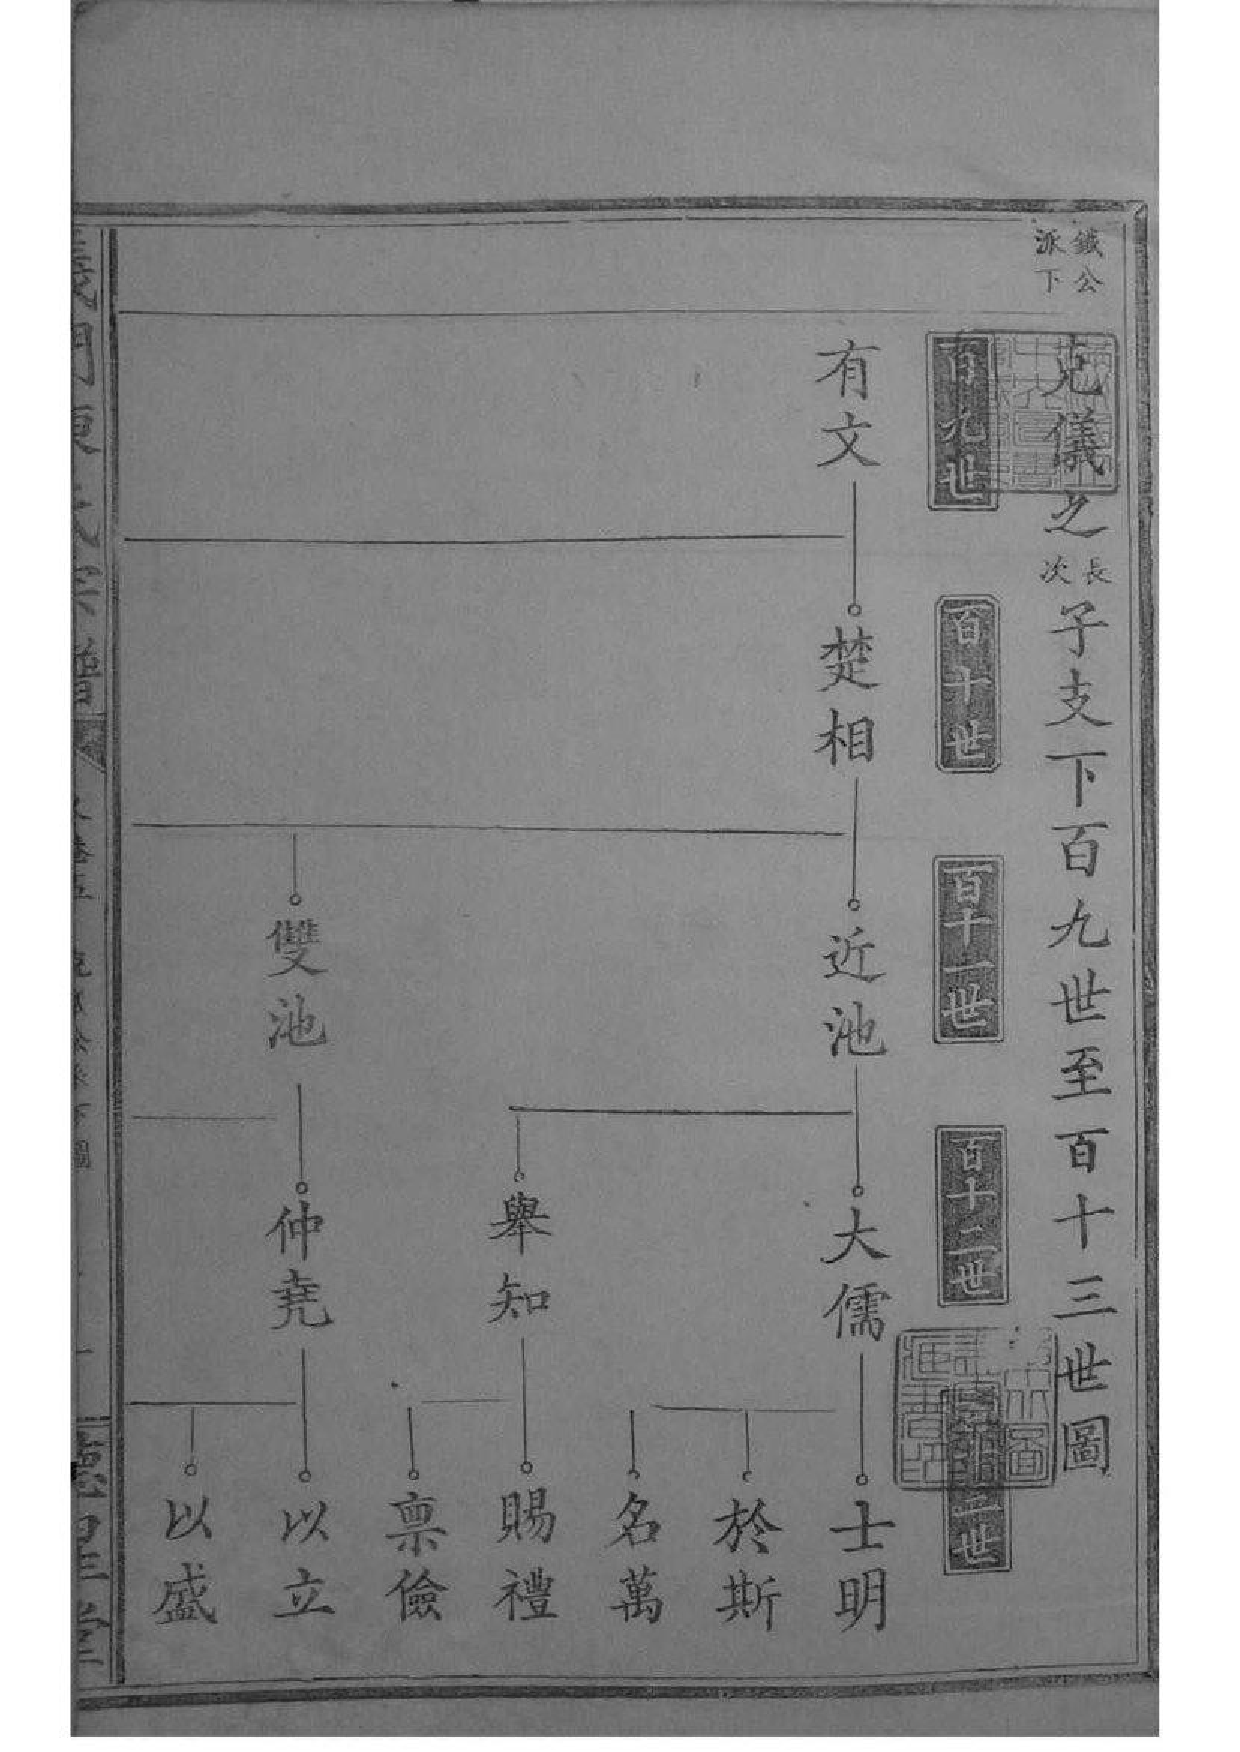 鐵公
派下
克儀之長次子支下百九世至百十三世圖
百九世
百十世
百十一世
百十二世
有文
楚相
近池
大儒
士明
於斯
名萬
舉知
賜禮
禀儉
雙池
仲堯
以立
以盛